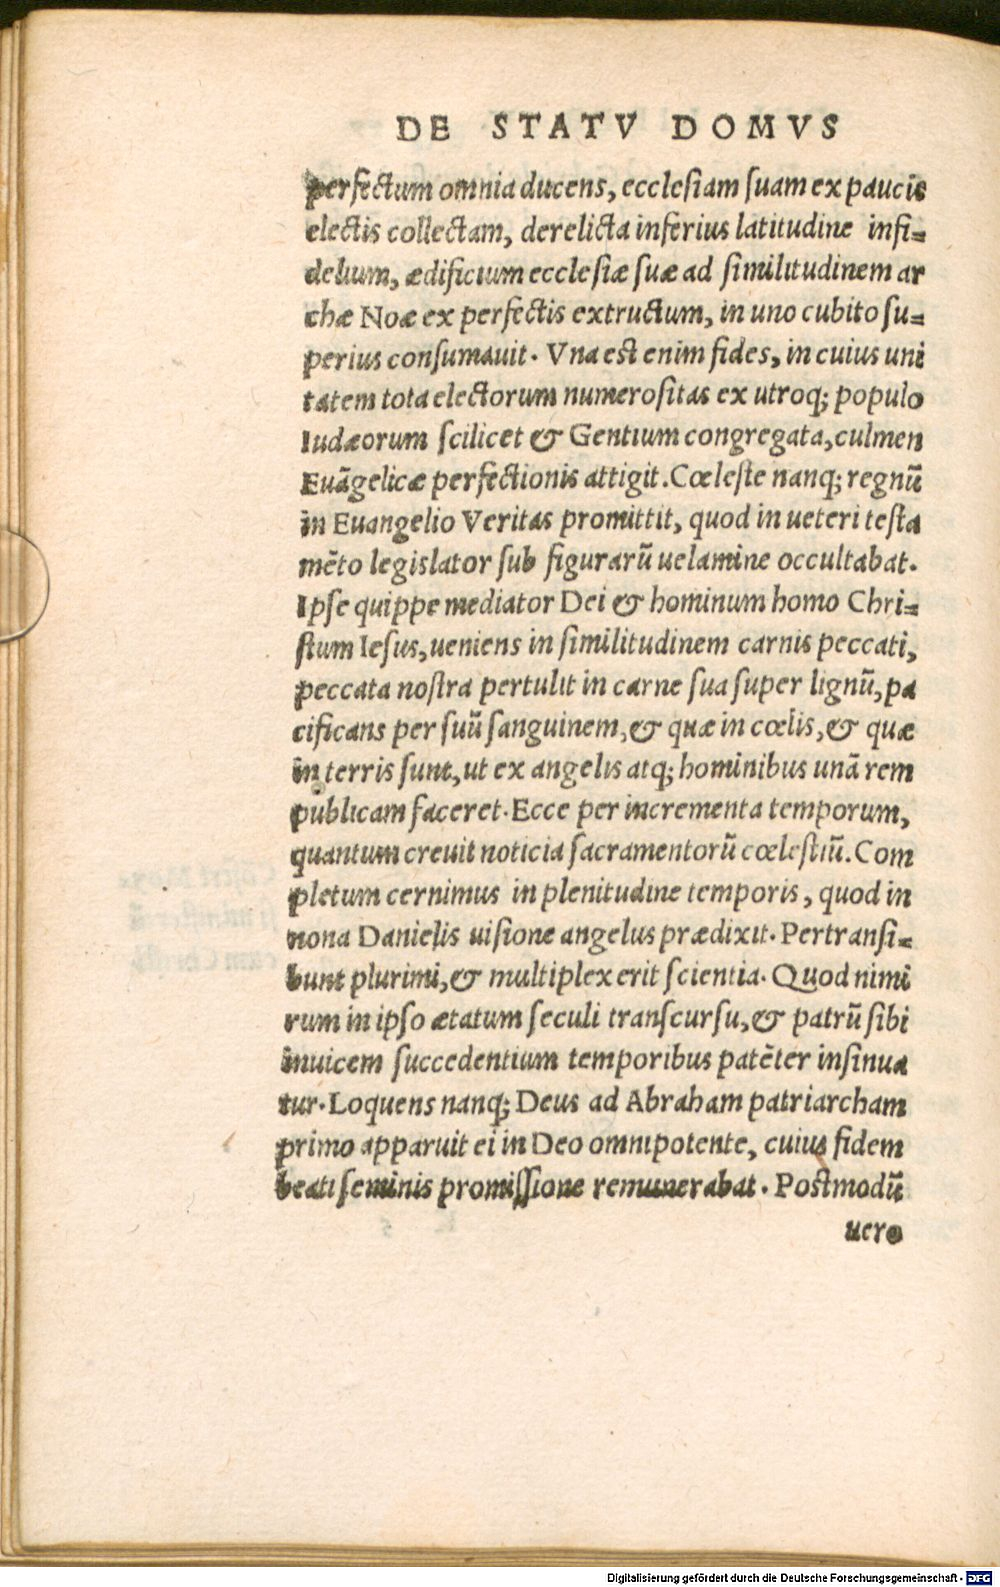 DE STATV DOMVS
perfectum omnia ducens, ecclesiam suam ex paucis
electis collectam, derelicta inferius latitudine infi=
delium, ædificium ecclesiæ suæ ad similitudinem ar
chæ Noæ ex perfectis extructum, in uno cubito su=
perius consumauit. Vna est enim fides, in cuius uni
tatem tota electorum numerositas ex utroq; populo
Iudæorum scilicet & Gentium congregata, culmen
Euãgelicæ perfectionis attigit. Cœleste nanq; regnũ
in Euangelio Veritas promittit, quod in ueteri testa
mẽto legislator sub figurarũ uelamine occultabat.
Ipse quippe mediator Dei & hominum homo Chri=
stum Iesus, ueniens in similitudinem carnis peccati,
peccata nostra pertulit in carne sua super lignũ, pa
cificans per suũ sanguinem, & quæ in cœlis, & quæ
in terris sunt, ut ex angelis atq; hominibus unã rem
publicam faceret. Ecce per incrementa temporum,
quantum creuit noticia sacramentorũ cœlestiũ. Com
pletum cernimus in plenitudine temporis, quod in
nona Danielis uisione angelus prædixit. Pertransi=
bunt plurimi, & multiplex erit scientia. Quod nimi
rum in ipso ætatum seculi transcursu, & patrũ sibi
inuicem succedentium temporibus patẽter insinua
tur. Loquens nanq; Deus ad Abraham patriarcham
primo apparuit ei in Deo omnipotente, cuius fidem
beati seminis promissione remunerabat. Postmodũ
uero
Digitalisierung gefördert durch die Deutsche Forschungsgemeinschaft - DFG